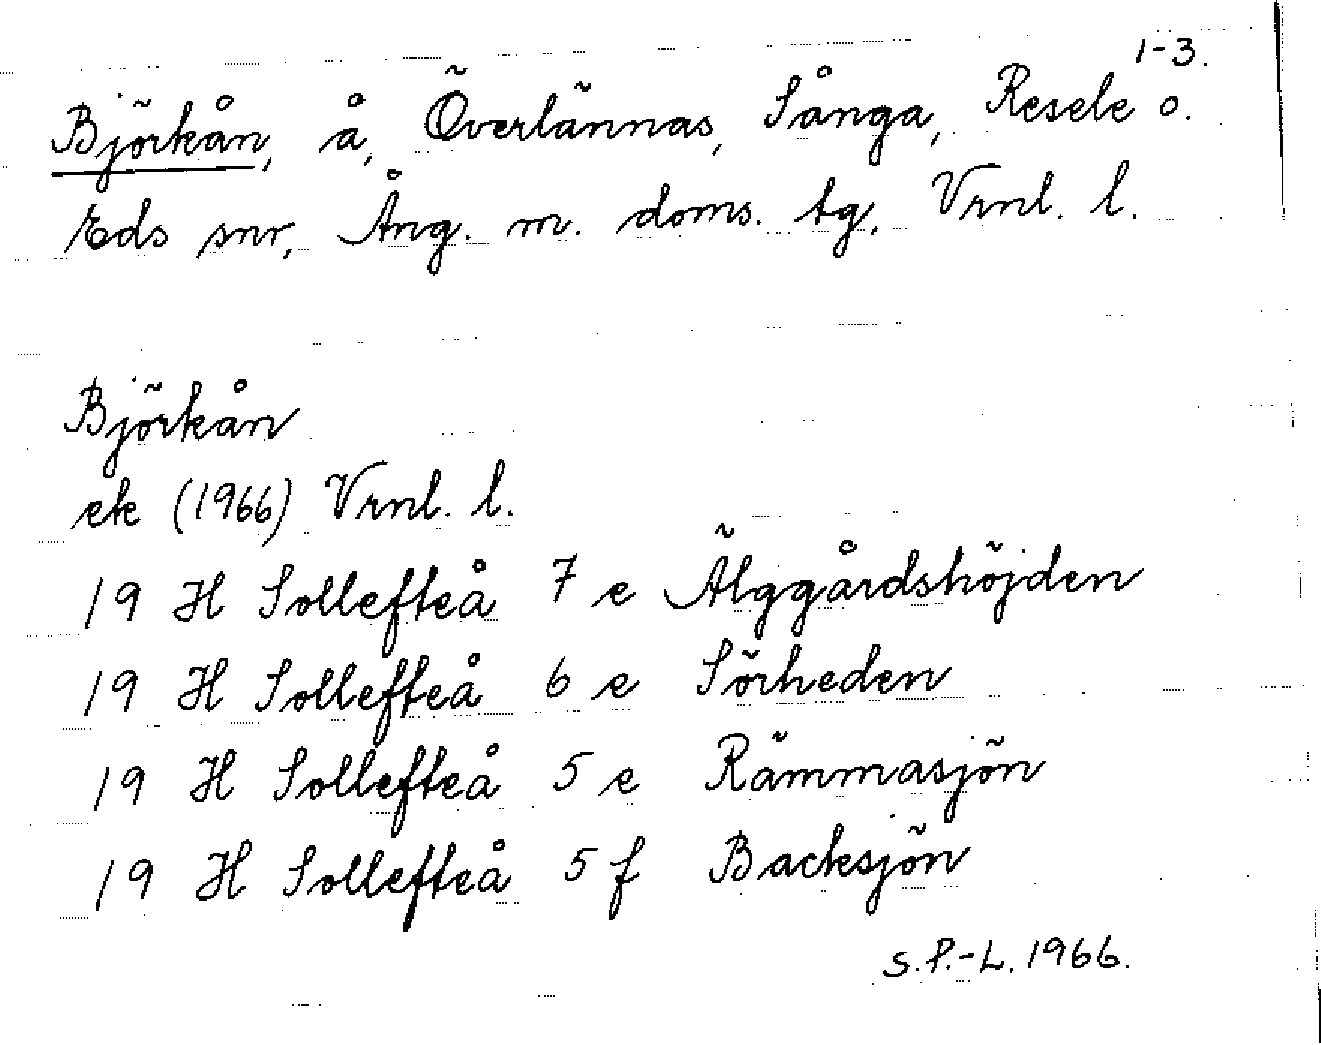 1-3.
Björkån, å, Överlännas, Sånga, Resele o.
Eds snr, Ång. m. doms. tg, Vrnl. l.
Björkån
ek (1966) Vrnl. l.
19 H Sollefteå 7 e Älggårdshöjden
19 H Sollefteå 6 e Sörheden
19 H Sollefteå 5 e Rämmasjön
19 H Sollefteå 5 f Backsjön
S.P.-L. 1966.